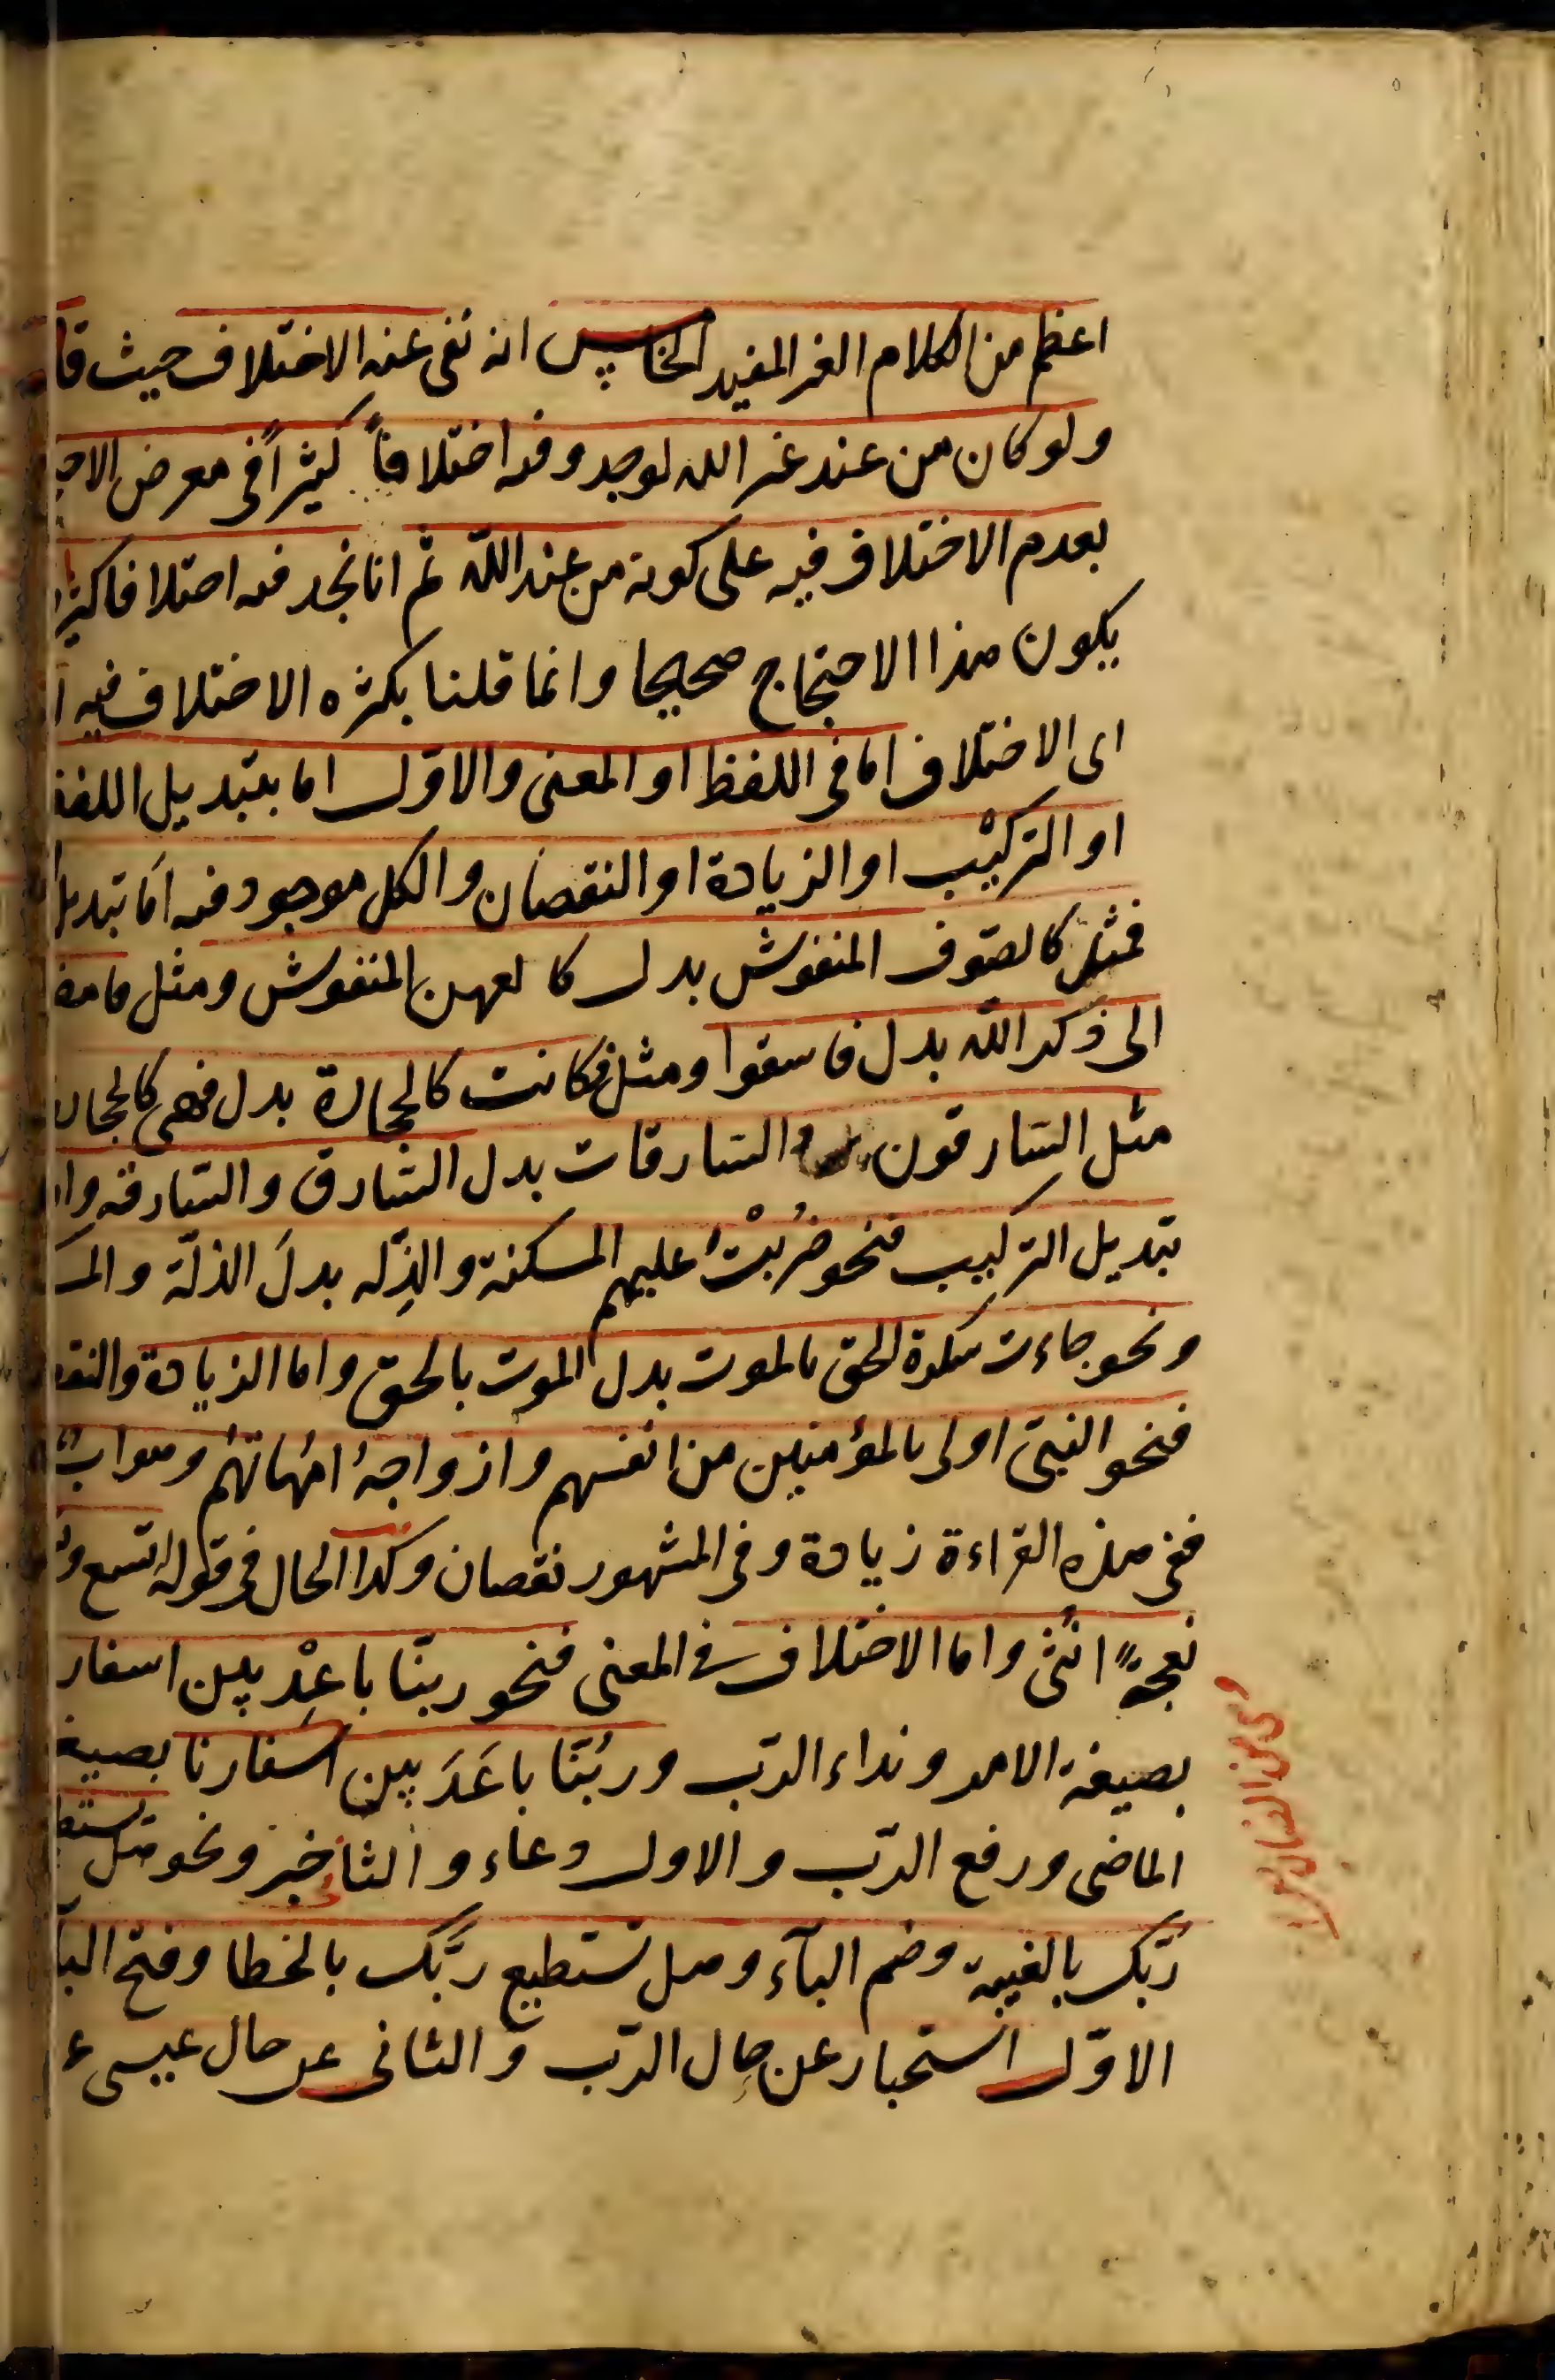 اعظم من الكلام الغير المفيد الخامس انه نفى عنه الاختلاف حيث قا
ولو كان من عند غير الله لوجدوا فيه اختلافاً كثيراً فى معرض الاحـ
بعدم الاختلاف فيه على كونه من عند الله ثم انا نجد فيه اختلافا كثيرا
يكون هذا الاحتجاج صحيحا وانما قلنا بكثره الاختلاف فيه
اى الاختلاف اما فى اللفظ او المعنى والاوّل اما بتبديل اللفظ
او التركيب او الزيادة او النقصان والكل موجود فيه اما تبديل
فمثل كالصوف المنفوش بدل كالعهن المنفوش ومثل فامضـ
الى ذكر الله بدل فاسعوا ومثل فكانت كالحجارة بدل فهى كالحجار
مثل السارقون والسارقات بدل السارق والسارقة وا
تبديل التركيب فنحو ضُربتْ عليهم المسكنة والذِلّه بدلَ الذلّة والمسـ
ونحو جاءت سكرة الحق بالموت بدل الموت بالحق واما الزيادة والنقـ
فنحو النبىّ اولى بالمؤمنين من انفسهم وازواجهُ امهاتهُم وهو ابٌ
ففى هذه القراءة زيادة وفى المشهور نقصان وكذا الحال فى قوله تسع و
نعجةً انثى واما الاختلاف فى المعنى فنحو ربّنا باعِدْ بين اسفار
بصيغة الامر ونداء الربّ وربُّنا باعَدَ بين اسفارنا بصيغـ
الماضى ورفع الربّ والاول دعاء والثانى خبر ونحو هل يستطـ
رُبّك بالغيبة وضم الباء وهل تستطيع ربَّك بالخطا وفتح البا
الاوّل استخبار عن حال الربّ والثانى عن حال عيسى ع